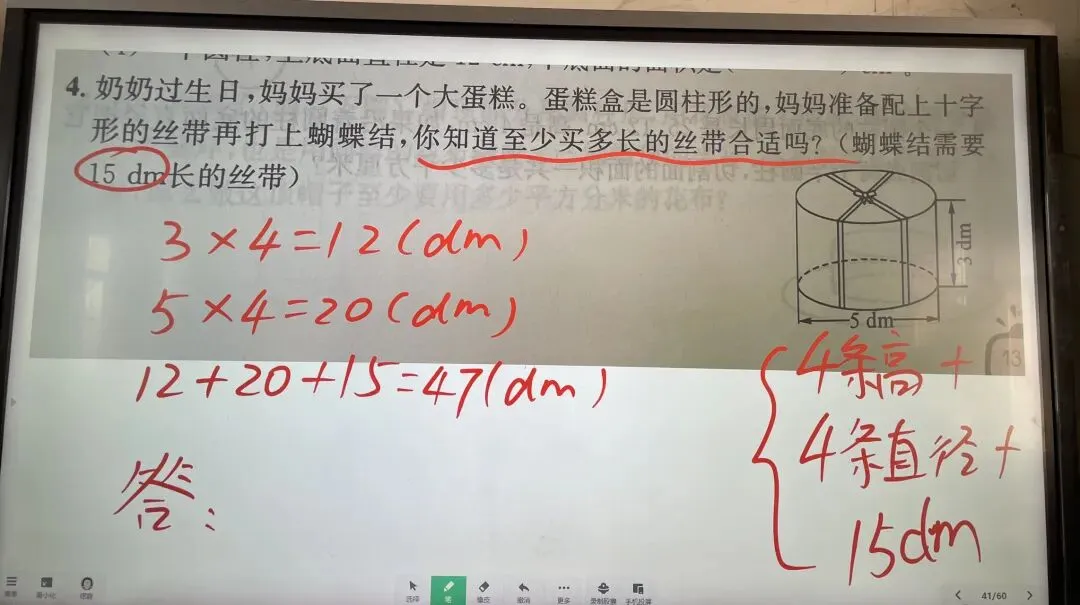 4. 奶奶过生日,妈妈买了一个大蛋糕。蛋糕盒是圆柱形的,妈妈准备配上十字
形的丝带再打上蝴蝶结,你知道至少买多长的丝带合适吗?(蝴蝶结需要
15 dm长的丝带)
3×4=12(dm)
5×4=20(dm)
12+20+15=47(dm)
答:
3 dm
5 dm
13
4条高+
4条直径+
15dm
选择
笔
橡皮
撤消
更多
手机投屏
41/60